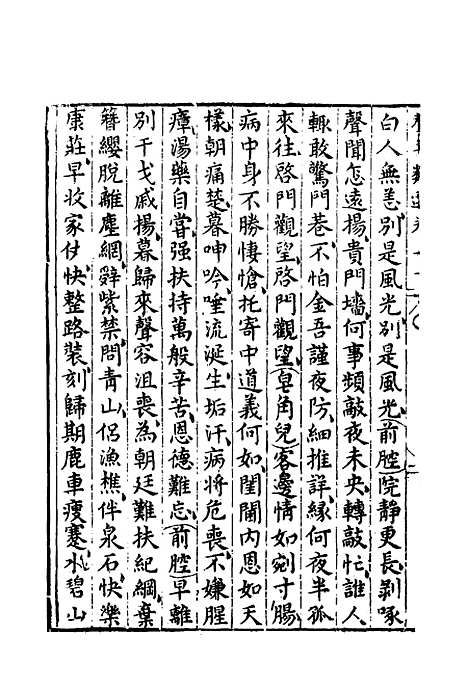 白人無恙別是風光別是風光(前腔)院靜更長剝啄
聲聞怎遠揚貴門墻何事頻敲夜未央轉敲忙誰人
輙敢驚門巷不怕金吾謹夜防細推詳緣何夜半孤
來往啓門觀望啓門觀望(皂角兒)客邊情如剜寸腸
病中身不勝悽愴托寄中道義何如閨閫內恩如天
樣朝痛楚暮呻吟唾流涎生垢汗病將危喪不嫌腥
瘴湯藥自嘗强扶持萬般辛苦恩德難忘(前腔)早離
別干戈戚揚暮歸來聲容沮喪為朝廷難扶紀綱棄
簪纓脫離塵網辭紫禁問青山侶漁樵伴泉石快樂
康莊早收家仗快整路裝刻歸期鹿車瘦蹇水碧山